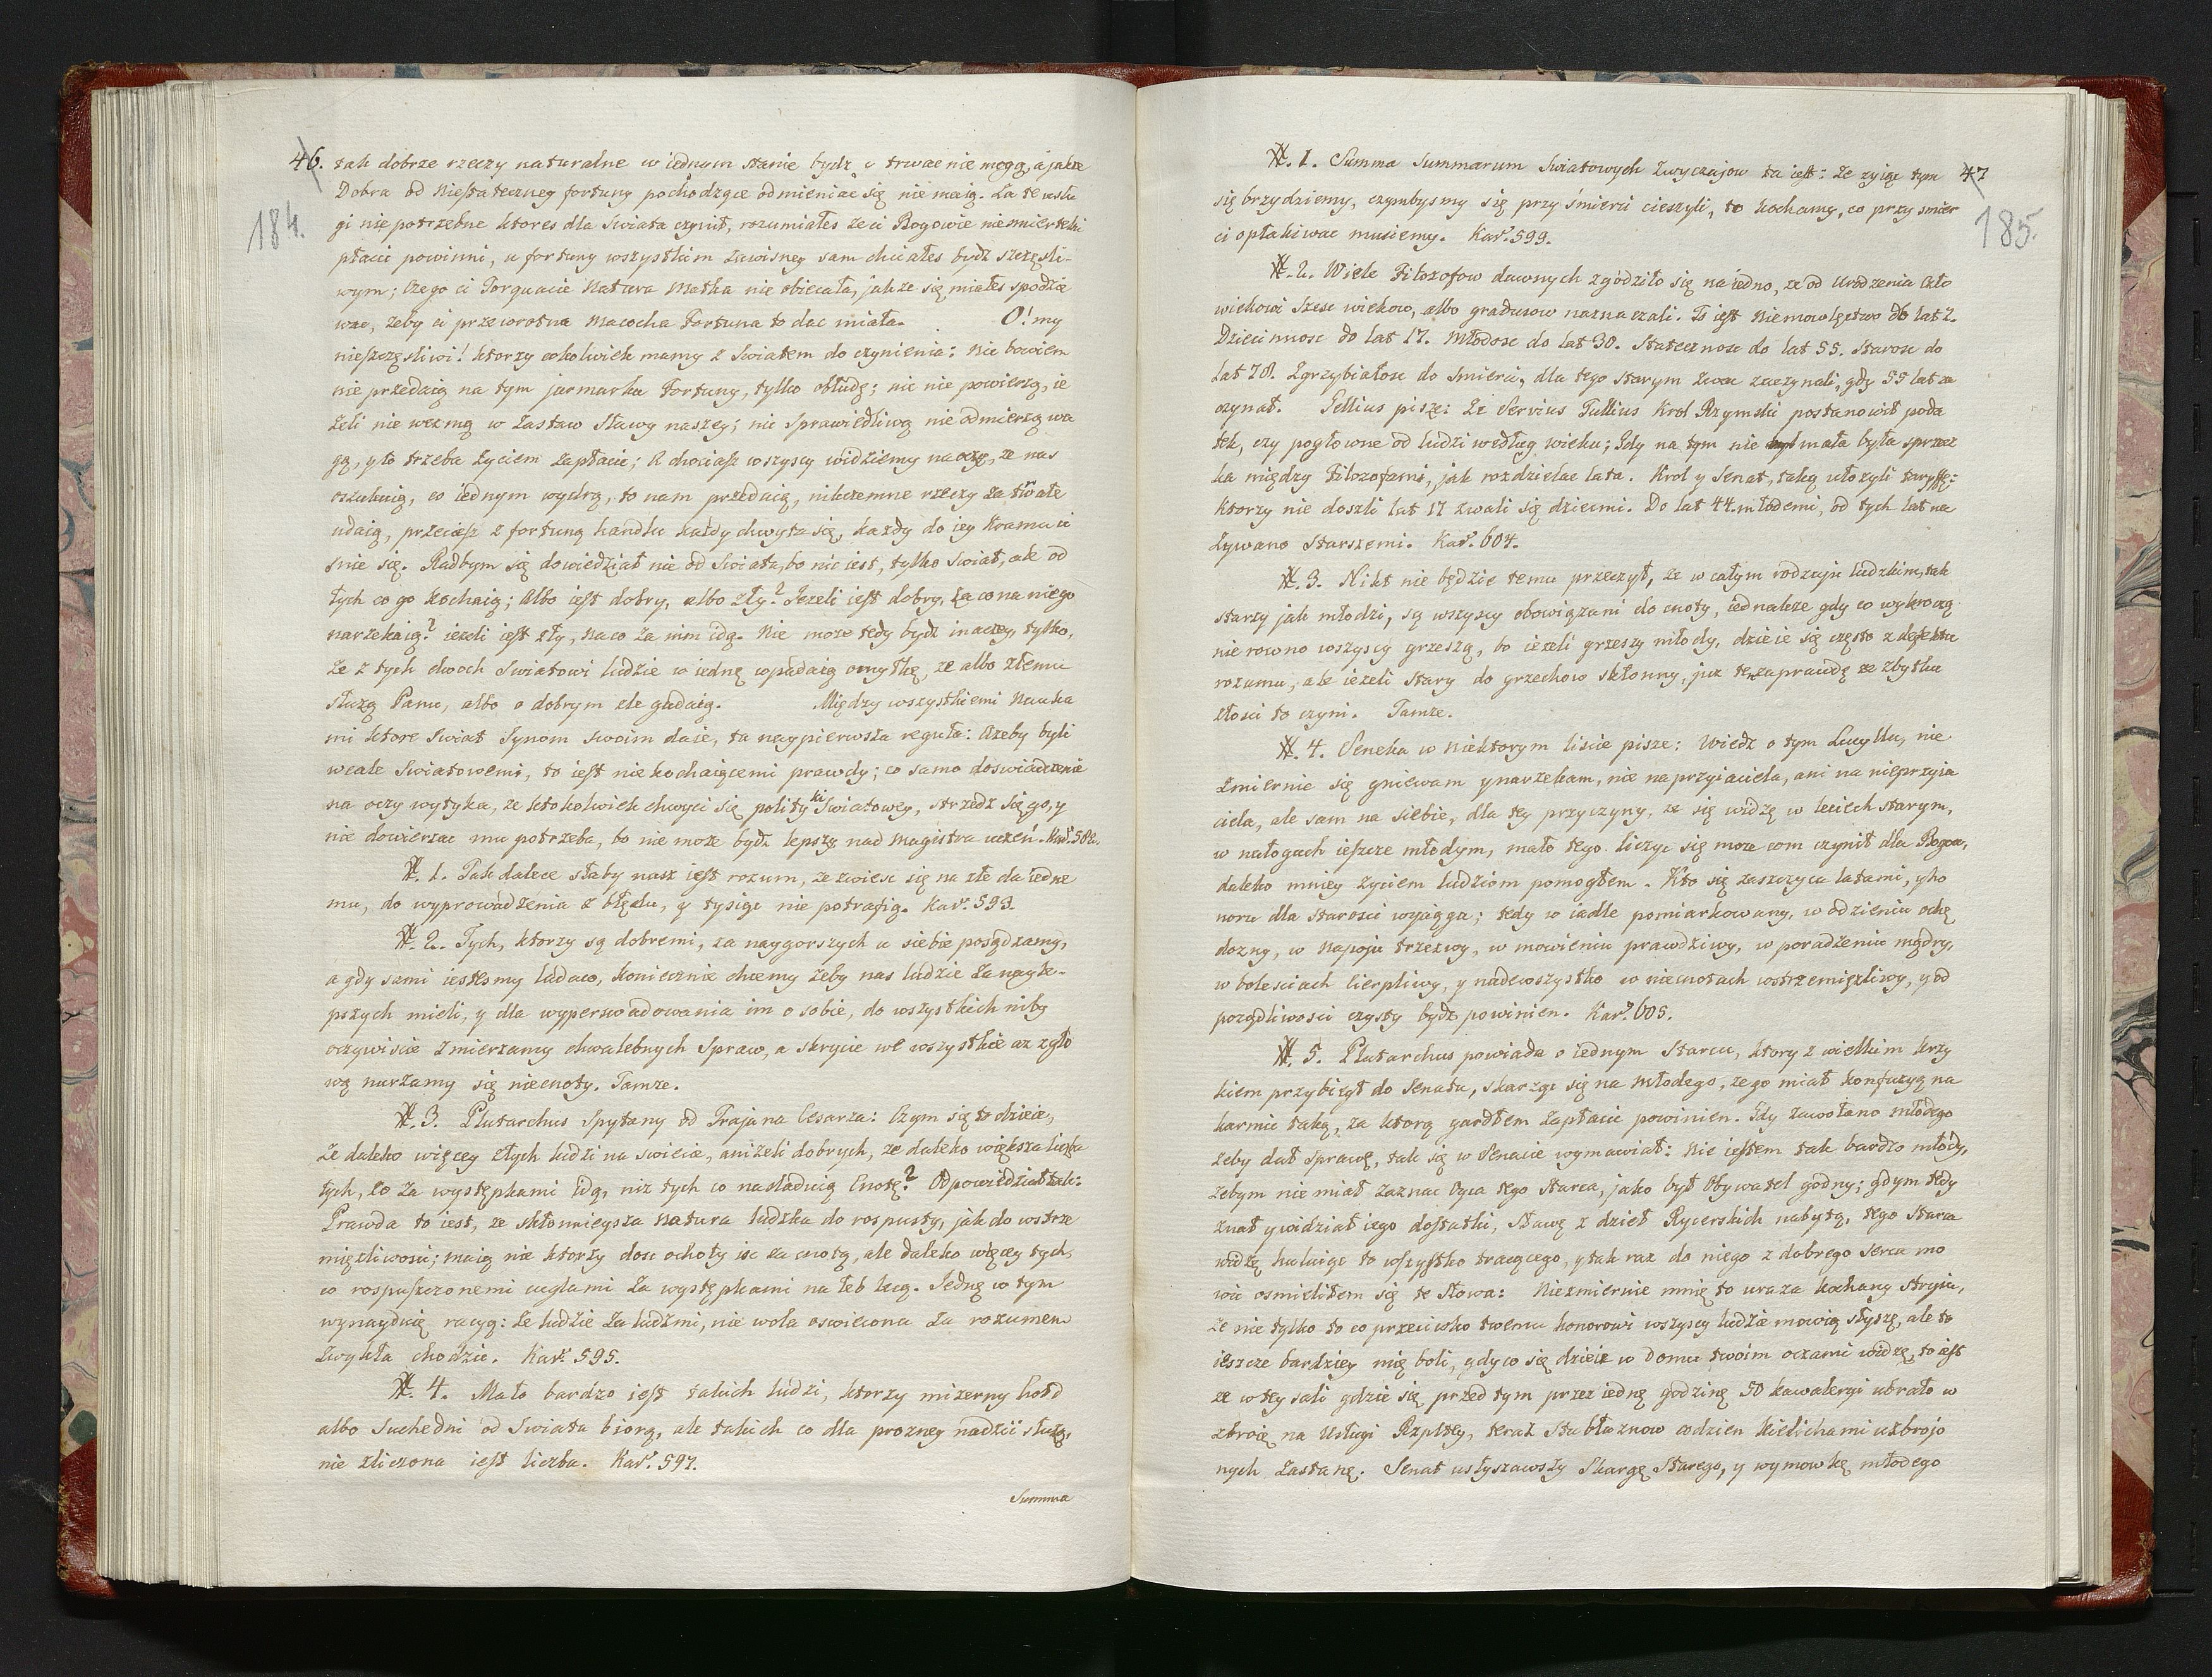 46.
184.
tak dobrze rzeczy naturalne w iednym stanie bydz y trwac nie mogą, a jakze
Dobra od Niestateczney fortuny pochodzące odmieniac się nie maią. Za te usłu
gi nie potrzebne ktores dla Swiata czynił, rozumiałes ze ci Bogowie niesmiertelni
płacic powinni, u fortuny wszystkim zawisney sam chciałes bydz szczęsli-
wym; Czego ci Torquacie Natura Matka nie obiecała, jakze się miałes spodzie
wac, zeby ci przewrotna Macocha Fortuna to dac miała. O! my
nieszczęsliwi! ktorzy cokolwiek mamy z Swiatem do czynienia: Nic bowiem
nie przedaią na tym jarmarku Fortuny, tylko obłudę; nic nie powierzą, ie
zeli nie wezmą w Zastaw Sławy naszey; nic Sprawiedliwą nie odmierzą wa
gą, y to trzeba zyciem zapłacic; A chociasz wszyscy widziemy na oczy, ze nas
oszukuią, co iednym wydrą, to nam przedaią, nikczemne rzeczy za trwałe
udaią, przeciesz z fortuną handlu kazdy chwyta się, kazdy do iey Kramu ci
snie się. Radbym się dowiedział nie od Swiata, bo nic iest, tylko Swiat, ale od
tych co go kochaią; Albo iest dobry, albo zły? Jezeli iest dobry, za co na niego
narzekaią? iezeli iest zły, na co za nim idą. Nie moze tedy bydz inaczey, tylko,
ze z tych dwoch Swiatowi ludzie w iednę wpadaią omyłkę, ze albo złemu
służą Panu, albo o dobrym zle gadaią. Między wszystkiemi Nauka
mi ktore Swiat Synom swoim daie, ta naypierwsza reguła: Azeby byli
wcale Swiatowemi, to iest nie kochaiącemi prawdy; co samo doswiadczenie
na oczy wytyka, ze ktokolwiek chwyci się polityki Swiatowey, strzedz się go, y
nie dowierzac mu potrzeba, bo nie moze bydz lepszy nad Magistra uczeń. Kar. 582.
N. 1. Tak dalece słaby nasz iest rozum, ze zwiesc się na złe da iedne
mu, do wyprowadzenia z błędu, y tysiąc nie potrafią. Kar. 593.
N. 2. Tych, ktorzy są dobremi, za naygorszych u siebie posądzamy,
a gdy sami iestesmy ladaco, koniecznie chcemy zeby nas ludzie za nayle-
pszych mieli, y dla wyperswadowania im o sobie, do wszystkich niby
oczywiscie zmierzamy chwalebnych Spraw, a skrycie we wszystkie az z gło
wą nurzamy się niecnoty. Tamze.
N. 3. Plutarchus Spytany od Trajana Cesarza: Czym się to dzieie,
ze daleko więcey złych ludzi na swiecie, anizeli dobrych, ze daleko większa liczba
tych, co za występkami idą, niz tych co nasladuią Cnotę? Odpowiedział tak:
Prawda to iest, ze skłonnieysza Natura ludzka do rospusty, jak do wstrze
mięzliwosci; maią nie ktorzy dosc ochoty isc za cnotą, ale daleko więcey tych,
co rospuszczonemi cuglami za występkami na łeb lecą. Jednę w tym
wynayduię racyą: ze ludzie za ludzmi, nie wola oswiecona za rozumem
zwykła chodzic. Kar. 595.
N. 4. Mało bardzo iest takich ludzi, ktorzy mizerny hołd
albo Suchedni od Swiata biorą, ale takich co dla prozney nadzieii służą,
nie zliczona iest liczba. Kar. 597.
Summa
47
185.
N. 1. Summa Summarum Swiatowych Zwyczajow ta iest: ze zyiąc tym
się brzydziemy, czymbysmy się przy śmierci cieszyli, to kochamy, co przy smier
ci opłakiwac musiemy. Kar. 599.
N. 2. Wiele Filozofow dawnych zgodziło się na iedno, ze od urodzenia Czło
wiekowi szesc wiekow, albo gradusow naznaczali. To iest Niemowlęctwo do lat 2.
Dziecinnosc do lat 17. Młodosc do lat 30. Statecznosc do lat 55. Starosc do
lat 78. Zgrzybiałosc do Smierci, dla tego starym zwac zaczynali, gdy 55 lat za
czynał. Gellius pisze: Ze Servius Tullius Krol Rzymski postanowił poda
tek, czy pogłowne od ludzi według wieku; Gdy na tym nie mała była sprzecz
ka między Filozofami, jak rozdzielac lata. Krol y Senat, taką ułozyli taryffę:
Ktorzy nie doszli lat 17 zwali się dziecmi. Do lat 44. młodemi, od tych lat na
zywano Starszemi. Kar. 604.
N. 3. Nikt nie będzie temu przeczył, ze w całym rodzaju ludzkim, tak
starzy jak młodzi, są wszyscy obowiązani do cnoty, iednakze gdy co wykroczą
nie rowno wszyscy grzeszą, bo iezeli grzeszy młody, dzieie się często z defektu
rozumu, ale iezeli Stary do grzechow skłonny, juz ten zaprawdę ze zbytku
złosci to czyni. Tamze.
N. 4. Seneka w niektorym liscie pisze: Wiedz o tym Lucyllu, nie
zmiernie się gniewam y narzekam, nie na przyiaciela, ani na nieprzyia
ciela, ale sam na siebie, dla tey przyczyny, ze się widzę w leciech starym,
w nałogach ieszcze młodym, mało tego liczyc się moze com czynił dla Bogow,
daleko mniey zyciem ludziom pomogłem. Kto się zaszczyca latami, y ho
noru dla starosci wyciąga; tedy w iadle pomiarkowany, w odzieniu ochę
dozny, w Napoju trzezwy, w mowieniu prawdziwy, w poradzeniu mądry,
w bolesciach Cierpliwy, y nadewszystko w niecnotach wstrzemięzliwy, y od
poządliwosci czysty bydz powinien. Kar. 605.
N. 5. Plutarchus powiada o iednym Starcu, ktory z wielkim krzy
kiem przybiegł do Senatu, skarząc się na Młodego, ze go miał konfuzyą na
karmic taką, za ktorą gardłem zapłacic powinien. Gdy zawołano młodego
zeby dał sprawę, tak się w Senacie wymawiał: Nie iestem tak bardzo młody,
zebym nie miał zaznac Oyca tego starca, jako był Obywatel godny; gdym tedy
znał y widział iego dostatki, sławę z dzieł Rycerskich nabytą, tego Starca
widzę hulaiąc to wszystko tracącego, y tak raz do niego z dobrego serca mo
wic osmieliłem się te słowa: Niezmiernie mnię to uraza kochany Stryiu,
ze nie tylko to co przeciwko twemu honorowi wszyscy ludzie mowią słyszę, ale to
ieszcze bardziey mię boli, gdy co się dzieie w domu twoim oczami widzę, to iest
ze w tey sali gdzie się przed tym przez iednę godzinę 50 kawaleryi ubrało w
zbroię na usługi Rzpltey, teraz Stu błaznow codzien kielichami uzbrojo
nych zastanę. Senat usłyszawszy Skargę Starego, y wymowkę młodego